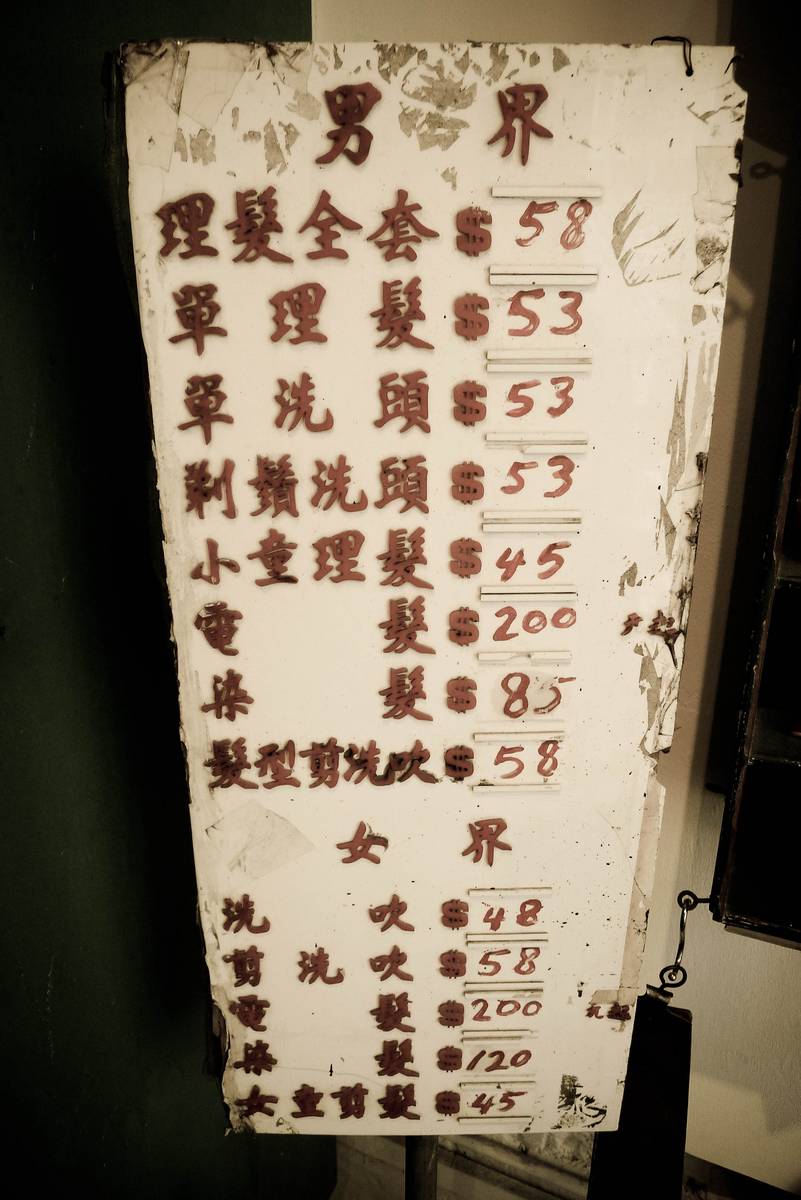 男 界
理髮全套 $ 58
單理髮 $ 53
單洗頭 $ 53
剃鬚洗頭 $ 53
小童理髮 $ 45
電髮 $ 200 元起
染髮 $ 85
髮型剪洗吹 $ 58
女 界
洗吹 $ 48
剪洗吹 $ 58
電髮 $ 200 元起
染髮 $ 120
女童剪髮 $ 45